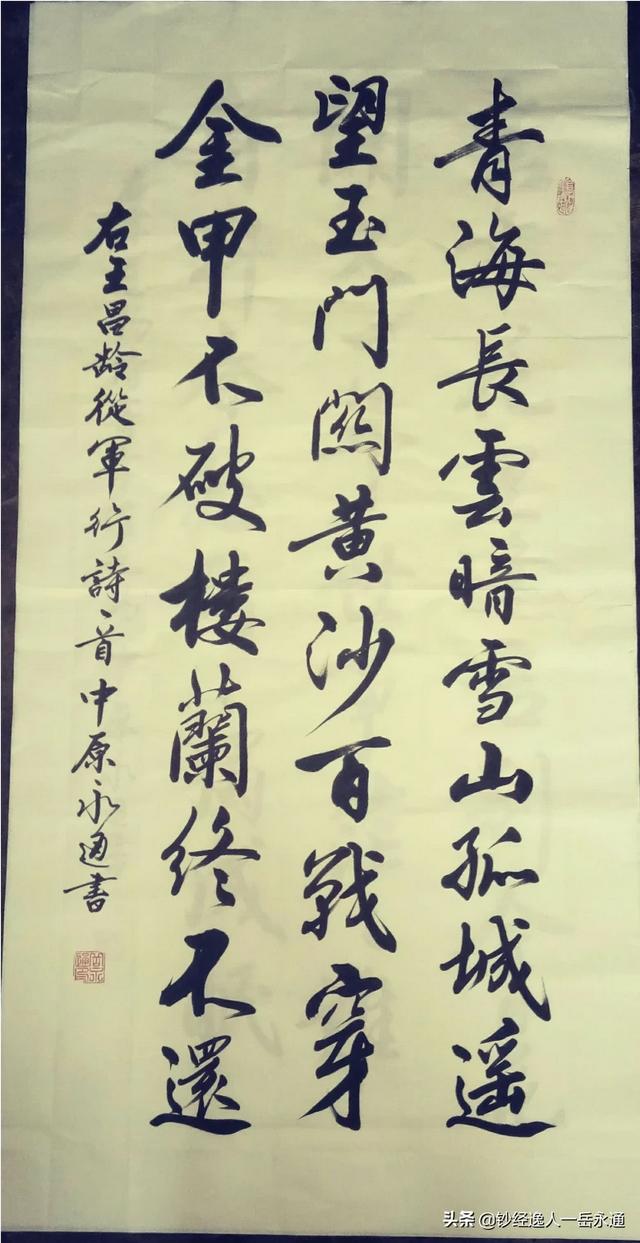 青海長雲暗雪山孤城遥
望玉門關黄沙百戰穿
金甲不破楼蘭終不還
右王昌龄從軍行詩一首中原永通書
头条 @钞经逸人一岳永通